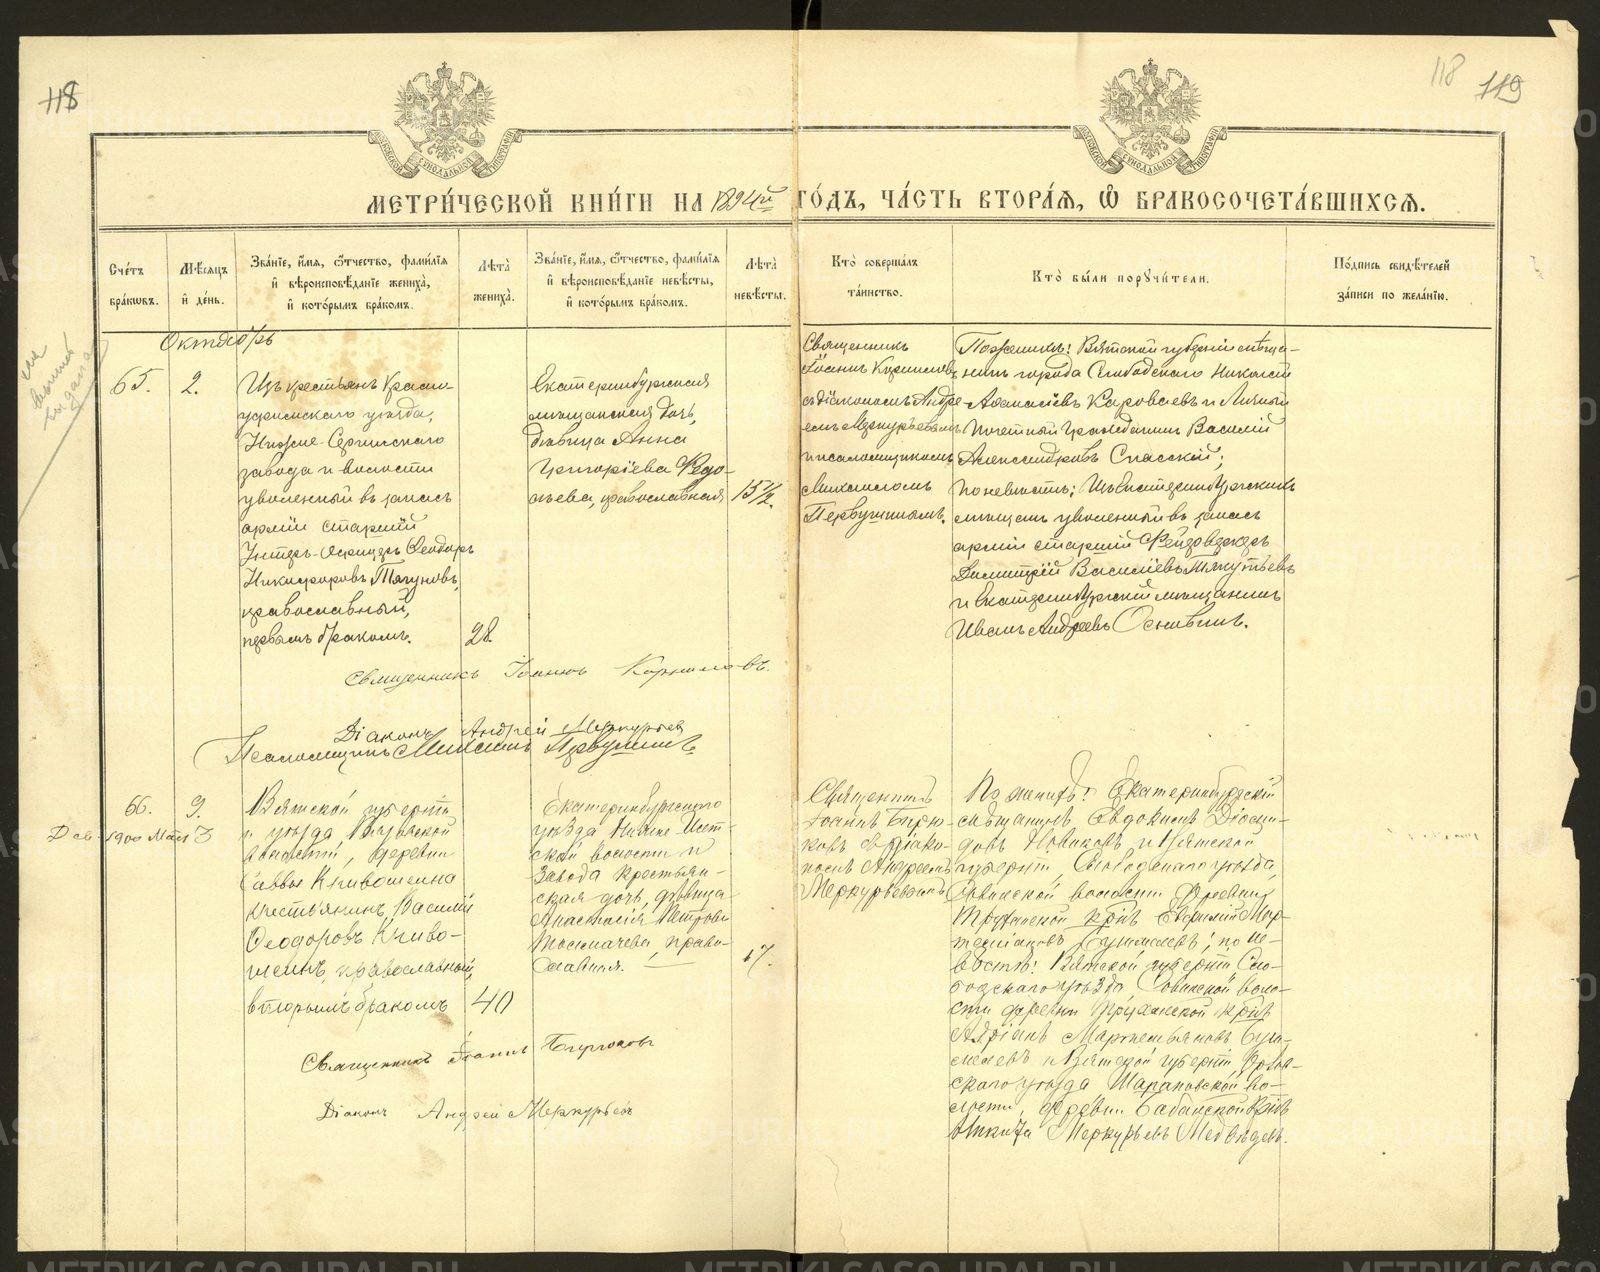 118
118 119
МОСКОВСКОЙ СѴНОДАЛЬНОЙ ТИПОГРАФІИ
МОСКОВСКОЙ СѴНОДАЛЬНОЙ ТИПОГРАФІИ
МЕТРИ́ЧЕСКОЙ КНИ́ГИ НА 1894й ГО́ДЪ, ЧА́СТЬ ВТОРА́Ѧ, Ѽ БРАКОСОЧЕТА́ВШИХСѦ.
Сче́тъ
бра́кѡвъ.
Мѣ́сѧцъ
и҆ де́нь.
Зва́нїе, и҆́мѧ, ѻ҆́тчество, фами́лїѧ
и҆ вѣроисповѣ́данїе жениха̀,
и҆ кото́рымъ бра́комъ.
Лѣ́та
жениха̀.
Зва́нїе, и҆́мѧ, ѻ҆́тчество, фами́лїѧ
и҆ вѣроисповѣ́данїе невѣ́сты,
и҆ кото́рымъ бра́комъ.
Лѣ́та
невѣ́сты.
Кто̀ соверша́лъ
та́инство.
Кто̀ бы́ли порꙋчи́тели.
По́дпись свидѣ́телей
за́писи по жела́нїю.
Октябрь
65.
2.
Изъ крестьянъ Красно-
уфимскаго уѣзда,
Нижне-Сергинскаго
завода и волости
уволенный въ запасъ
арміи старшій
Унтеръ-Офицеръ Ѳеодоръ
Никифоровъ Тягуновъ,
православный,
первымъ бракомъ.
28.
Екатеринбургская
мѣщанская дочь,
дѣвица Анна
Григоріева Ѳедо-
сѣева, православная
15 1/2.
Священникъ
Іоаннъ Корниловъ
съ діакономъ Андре-
емъ Меркурьевымъ
и псаломщикомъ
Михаиломъ
Первушинымъ.
По женихѣ: Вятской губерніи мѣща-
нинъ города Слободскаго Николай
Аѳанасіевъ Короваевъ и Личный
почетный гражданинъ Василій
Александровъ Спасскій;
по невѣстѣ: Изъ Екатеринбургскихъ
мѣщанъ уволенный въ запасъ
арміи старшій Фейерверкеръ
Димитрій Василіевъ
и Екатеринбургскій мѣщанинъ
Иванъ Андреевъ
Священникъ Іоаннъ Корниловъ.
Діаконъ Андрей Меркурьев
Псаломщикъ Михаилъ Первушинъ
66.
9.
1900 Мая 3
Вятской губерніи
и уѣзда
волости, деревни
Саввы Кривошеина
крестьянинъ Василій
Ѳеодоровъ Криво-
шеинъ, православный,
вторымъ бракомъ
40
Екатеринбургскаго
уѣзда Нижне-Исет-
ской волости и
завода крестьян-
ская дочь, дѣвица
Анастасія Петрова
Толмачева, право-
славная.
17.
Священникъ
Іоаннъ Бирю-
ковъ съ діако-
номъ Андреемъ
Меркурьевымъ
По женихѣ: Екатеринбургскій
мѣщанинъ Евдокимъ Діоми-
довъ Новиковъ и Вятской
губерніи, Слободскаго уѣзда,
волости деревни
крнъ Евфимій Мар-
; по не-
вѣстѣ: Вятской губерніи Сло-
бодскаго уѣзда воло-
сти деревни крнъ
Адріанъ Мартемьяновъ
и Вятской губерніи, Орлов-
скаго уѣзда Шарановской во-
лости, деревни Бабинской крнъ
Никита Меркурьевъ Медвѣдевъ.
Священникъ Іоаннъ Бирюковъ
Діаконъ Андрей Меркурьевъ
METRIKI.GASO-URAL.RU